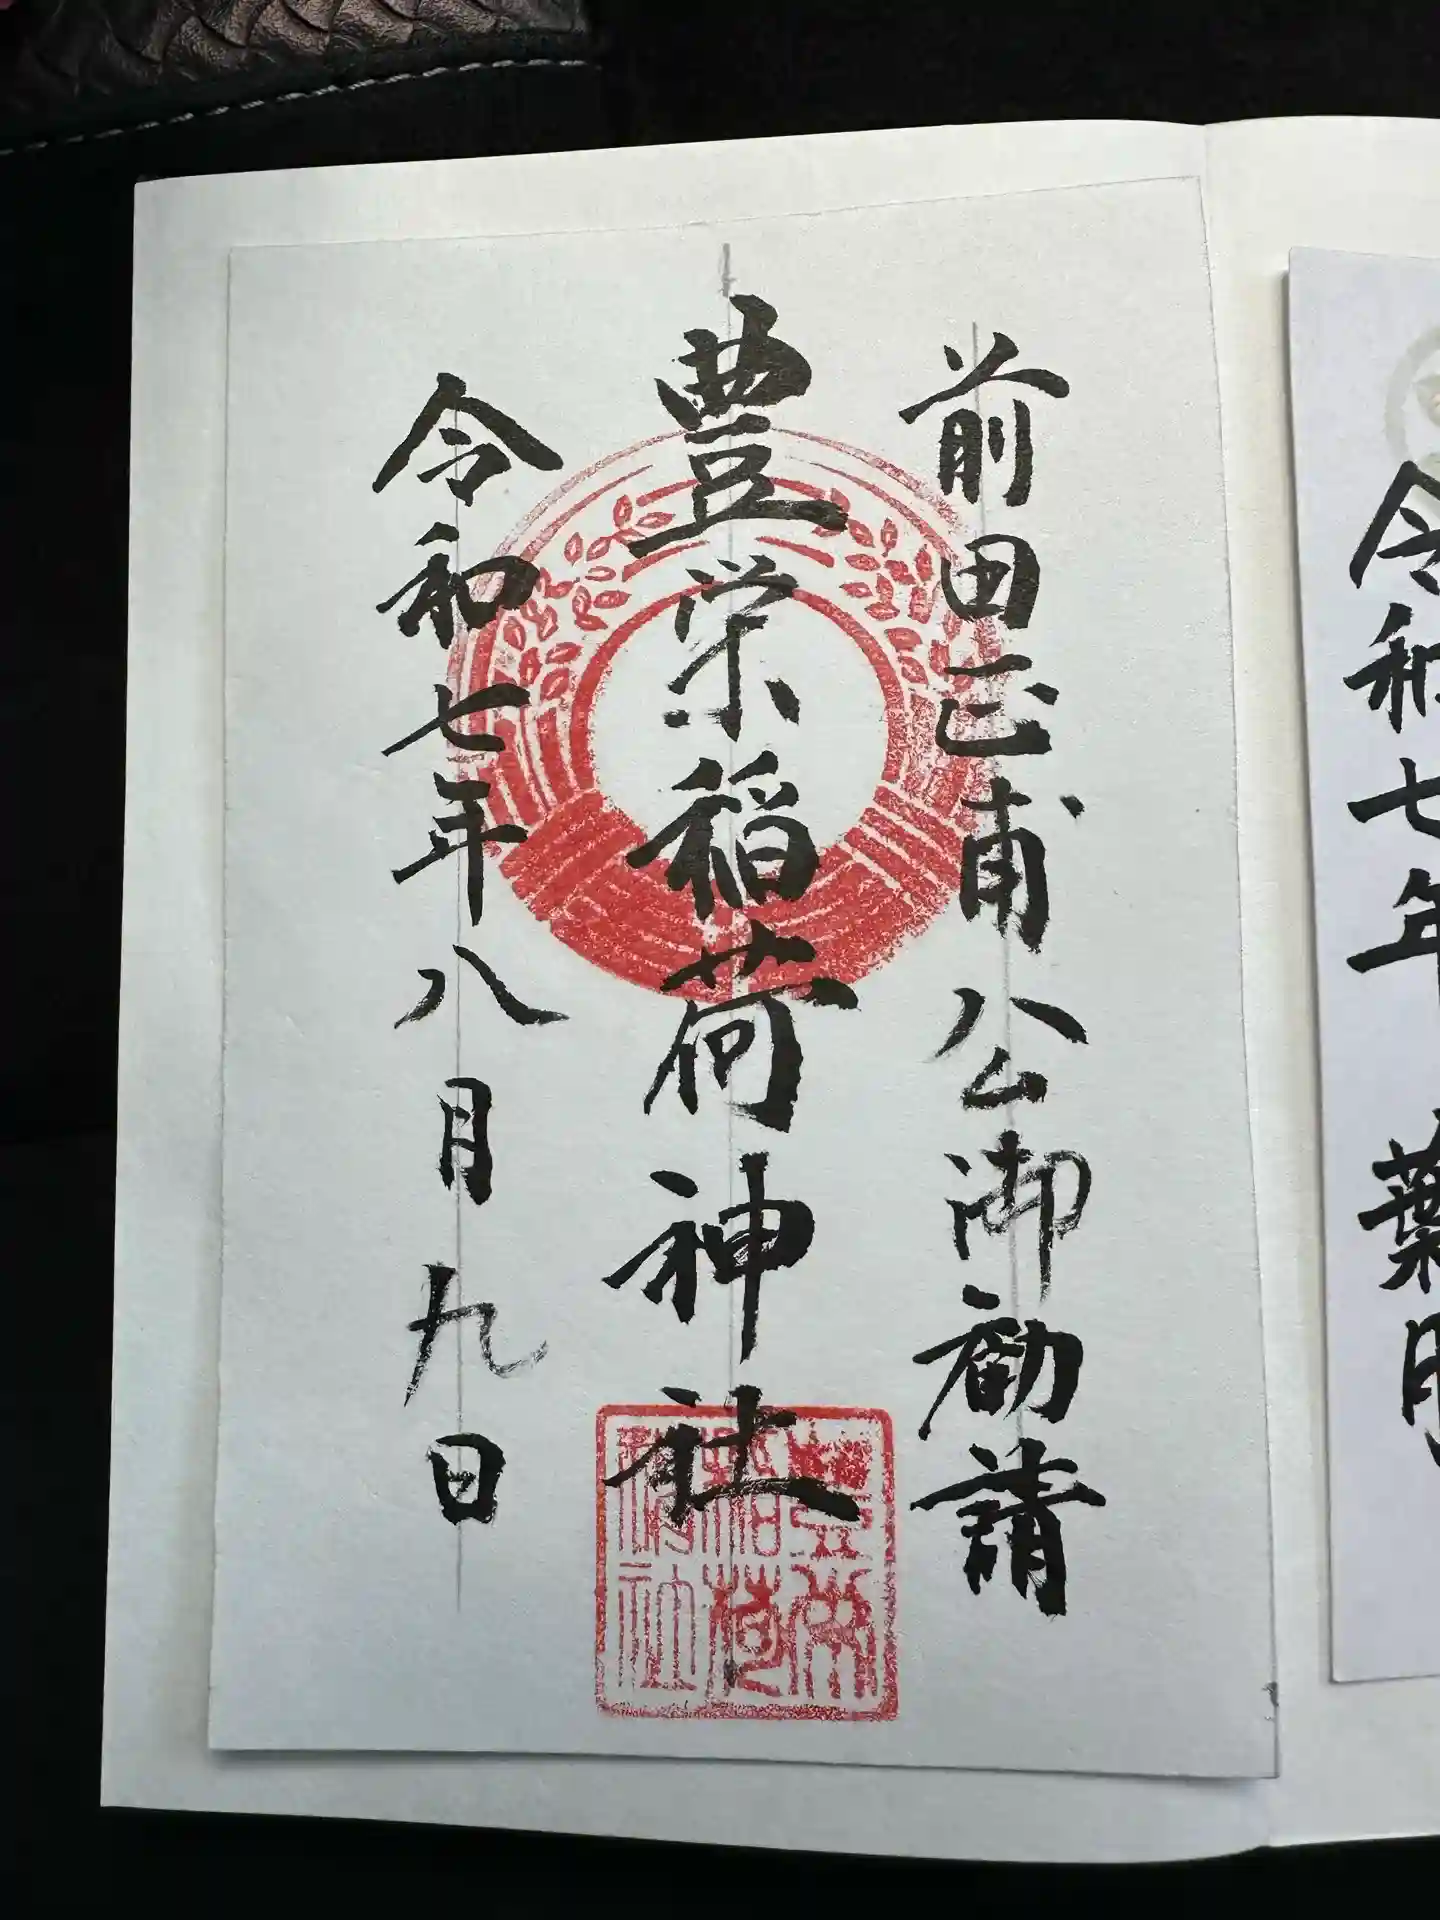 令和七年 葉月
前田正甫公御勧請
豊栄稲荷神社
令和七年八月九日
豊栄
稲荷
神社